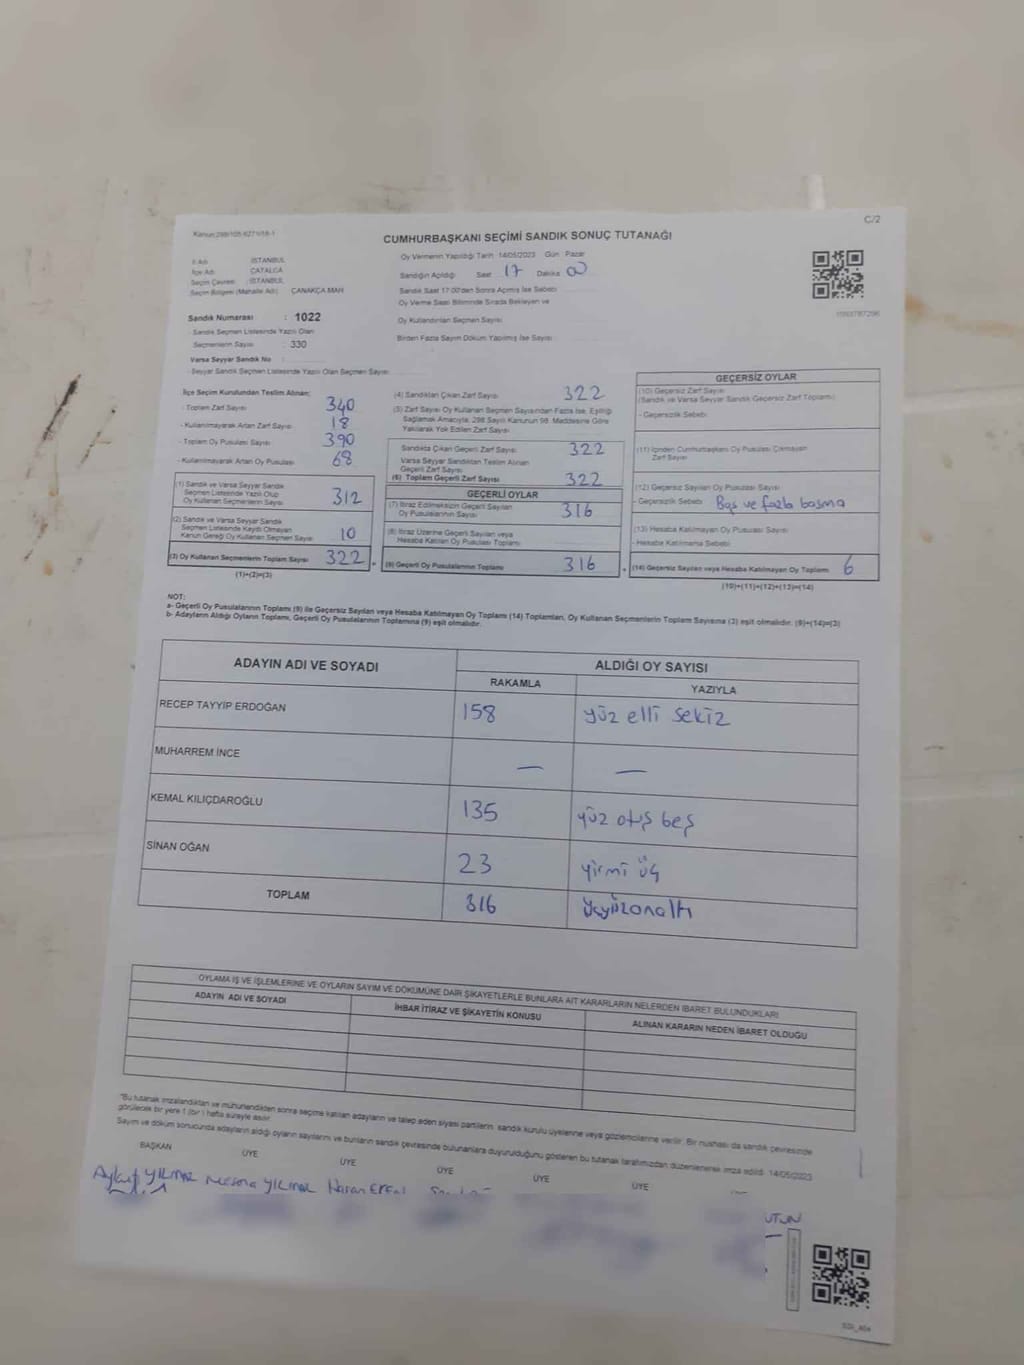 C/2
CUMHURBAŞKANI SEÇİMİ SANDIK SONUÇ TUTANAĞI
İl Adı : İSTANBUL
İlçe Adı : ÇATALCA
Seçim Çevresi : İSTANBUL
Seçim Bölgesi (Mahalle Adı) : ÇANAKÇA MAH
Sandık Numarası : 1022
- Sandık Seçmen Listesinde Yazılı Olan
Seçmenlerin Sayısı : 330
Varsa Seyyar Sandık No :
- Seyyar Sandık Seçmen Listesinde Yazılı Olan Seçmen Sayısı
Oy Vermenin Yapıldığı Tarih 14/05/2023 Gün Pazar
Sandığın Açıldığı Saat 17 Dakika 00
Sandık Saat 17:00'den Sonra Açılmış İse Sebebi
Oy Verme Saati Bitiminde Sırada Bekleyen ve
Oy Kullandırılan Seçmen Sayısı
Birden Fazla Sayım Döküm Yapılmış İse Sayısı
İlçe Seçim Kurulundan Teslim Alınan;
- Toplam Zarf Sayısı 340
- Kullanılmayarak Artan Zarf Sayısı 18
- Toplam Oy Pusulası Sayısı 390
- Kullanılmayarak Artan Oy Pusulası 68
(1) Sandık ve Varsa Seyyar Sandık
Seçmen Listesinde Yazılı Olup
Oy Kullanan Seçmenlerin Sayısı 312
(2) Sandık ve Varsa Seyyar Sandık
Seçmen Listesinde Kaydı Olmayan
Kanun Gereği Oy Kullanan Seçmen Sayısı 10
(3) Oy Kullanan Seçmenlerin Toplam Sayısı 322
(1)+(2)=(3)
(4) Sandıktan Çıkan Zarf Sayısı 322
(5) Zarf Sayısı Oy Kullanan Seçmen Sayısından Fazla İse, Eşitliği
Sağlamak Amacıyla, 298 Sayılı Kanunun 98. Maddesine Göre
Yakılarak Yok Edilen Zarf Sayısı
Sandıkta Çıkan Geçerli Zarf Sayısı 322
Varsa Seyyar Sandıktan Teslim Alınan
Geçerli Zarf Sayısı
(6) Toplam Geçerli Zarf Sayısı 322
GEÇERLİ OYLAR
(7) İtiraz Edilmeksizin Geçerli Sayılan
Oy Pusulalarının Sayısı 316
(8) İtiraz Üzerine Geçerli Sayılan veya
Hesaba Katılan Oy Pusulası Toplamı
(9) Geçerli Oy Pusulalarının Toplamı 316
GEÇERSİZ OYLAR
(10) Geçersiz Zarf Sayısı
(Sandık ve Varsa Seyyar Sandık Geçersiz Zarf Toplamı)
- Geçersizlik Sebebi
(11) İçinden Cumhurbaşkanı Oy Pusulası Çıkmayan
Zarf Sayısı
(12) Geçersiz Sayılan Oy Pusulası Sayısı
- Geçersizlik Sebebi Boş ve fazla basma
(13) Hesaba Katılmayan Oy Pusulası Sayısı
- Hesaba Katılmama Sebebi
(14) Geçersiz Sayılan veya Hesaba Katılmayan Oy Toplamı 6
(10)+(11)+(12)+(13)=(14)
NOT:
a- Geçerli Oy Pusulalarının Toplamı (9) ile Geçersiz Sayılan veya Hesaba Katılmayan Oy Toplamı (14) Toplamları, Oy Kullanan Seçmenlerin Toplam Sayısına (3) eşit olmalıdır. (9)+(14)=(3)
b- Adayların Aldığı Oyların Toplamı, Geçerli Oy Pusulalarının Toplamına (9) eşit olmalıdır.
ADAYIN ADI VE SOYADI ALDIĞI OY SAYISI
RAKAMLA YAZIYLA
RECEP TAYYİP ERDOĞAN 158 yüz elli sekiz
MUHARREM İNCE — —
KEMAL KILIÇDAROĞLU 135 yüz otuş beş
SİNAN OĞAN 23 yirmi üç
TOPLAM 316 üçyüzonaltı
OYLAMA İŞ VE İŞLEMLERİNE VE OYLARIN SAYIM VE DÖKÜMÜNE DAİR ŞİKAYETLERLE BUNLARA AİT KARARLARIN NELERDEN İBARET BULUNDUKLARI
ADAYIN ADI VE SOYADI İHBAR İTİRAZ VE ŞİKAYETİN KONUSU ALINAN KARARIN NEDEN İBARET OLDUĞU
"Bu tutanak imzalandıktan ve mühürlendikten sonra seçime katılan adayların ve talep eden siyasi partilerin sandık kurulu üyelerine veya gözlemcilerine verilir. Bir nüshası da sandık çevresinde
görülecek bir yere 1 (bir) hafta süreyle asılır.
Sayım ve döküm sonucunda adayların aldığı oyların sayılarını ve bunların sandık çevresinde bulunanlara duyurulduğunu gösteren bu tutanak tarafımızdan düzenlenerek imza edildi. 14/05/2023
BAŞKAN ÜYE ÜYE ÜYE ÜYE ÜYE
Aykut YILMAZ YILMAZ
UTUN